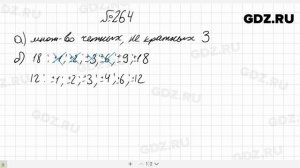 GDZ.RU
№264
а) множ-во четных, не кратных 3
б) 18: ±1, ±2, ±3, ±6, ±9, ±18
12: ±1; ±2; ±3; ±4; ±6; ±12
GDZ.RU